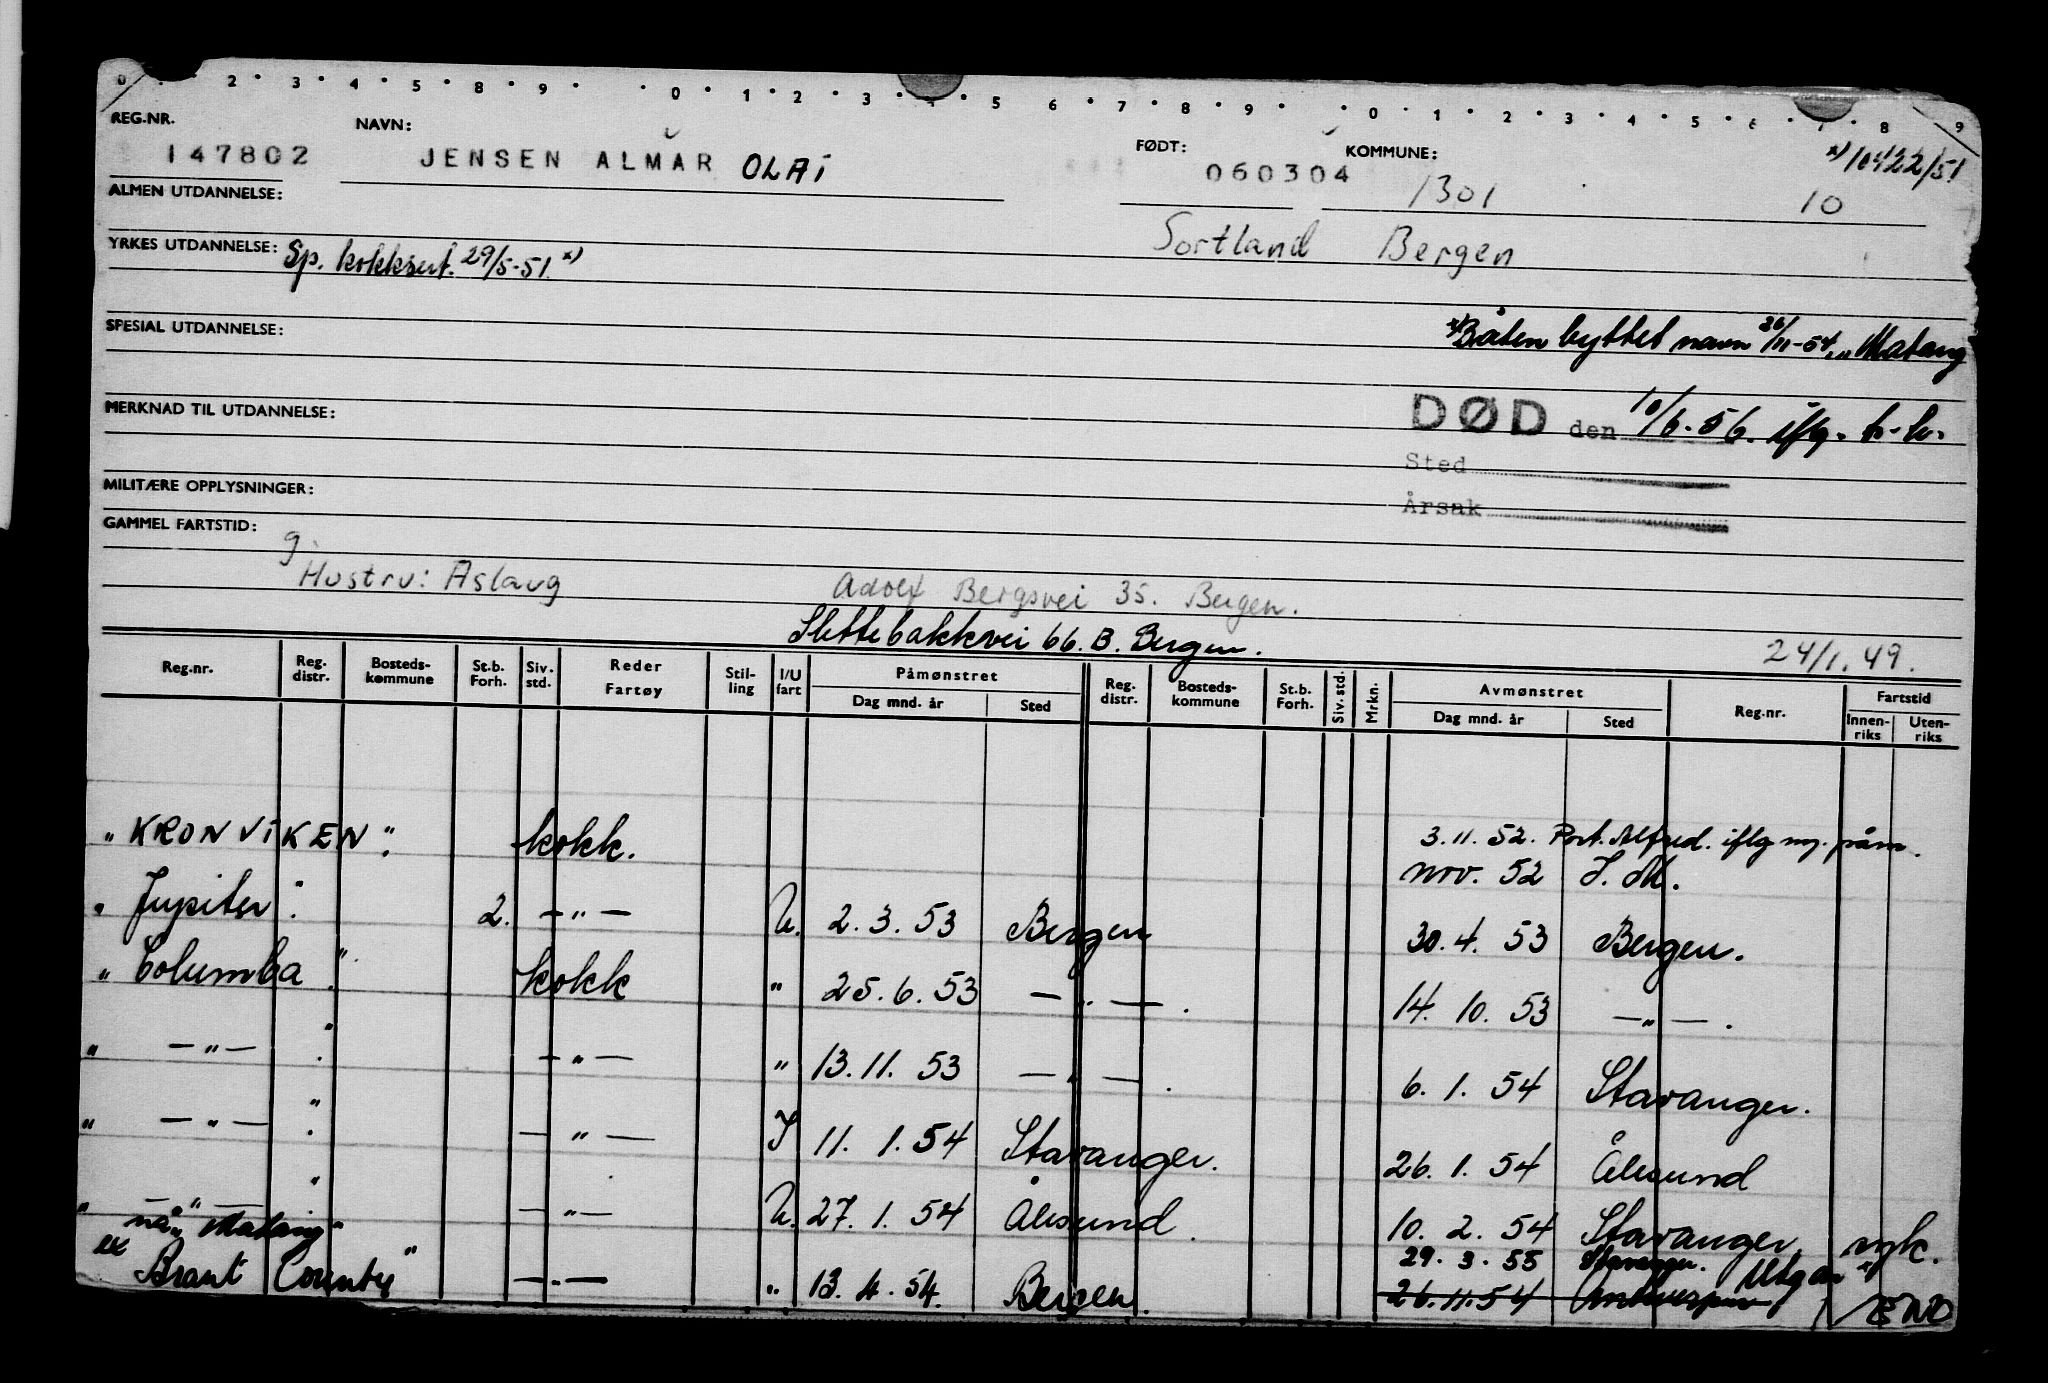 0 2 3 4 5 8 9 0 1 2 3 5 6 7 8 9 0 1 2 3 4 5 8 9
REG.NR. NAVN: FØDT: KOMMUNE:
147802 JENSEN ALMAR OLAI 060304 1301 10 x) 10422/51
ALMEN UTDANNELSE:
Sortland Bergen
YRKES UTDANNELSE: Sp. kokksert. 29/5-51 x)
SPESIAL UTDANNELSE:
x) Båten byttet navn 26/11-54 „Matang
MERKNAD TIL UTDANNELSE:
DØD den 10/6-56. iflg.
Sted
MILITÆRE OPPLYSNINGER:
Årsak
GAMMEL FARTSTID:
g.
Hustru: Aslaug Adolf Bergsvei 35. Bergen.
Slettebakkvei 66. B. Bergen. 24/1.49.
Reg.nr. Reg. distr. Bosteds-kommune St.b. Forh. Siv. std. Reder Fartøy Stil-ling I/U fart Påmønstret Dag mnd. år Sted Reg. distr. Bosteds-kommune St.b. Forh. Siv. std. Mrkn. Avmønstret Dag mnd. år Sted Reg.nr. Fartstid Innen-riks Uten-riks
3.11.52. Port Alfred. iflg ny. påm.
„KRONVIKEN". kokk. nov. 52 S. M.
„Jupiter". 2. —"— U. 2.3.53 Bergen 30.4.53 Bergen.
„Columba". kokk " 25.6.53 —"—. 14.10.53 —"—.
„ —"— ". —"— " 13.11.53 —"—. 6.1.54 Stavanger.
„ —"— ". —"— I 11.1.54 Stavanger. 26.1.54 Ålesund
„ —"— " —"— U. 27.1.54 Ålesund. 10.2.54 Stavanger. syk.
nå „Matang" 29.3.55 Stavanger.
ex Brant County" —"— " 13.4.54. Bergen. 26.11.54 Antwerpen Utgår x)